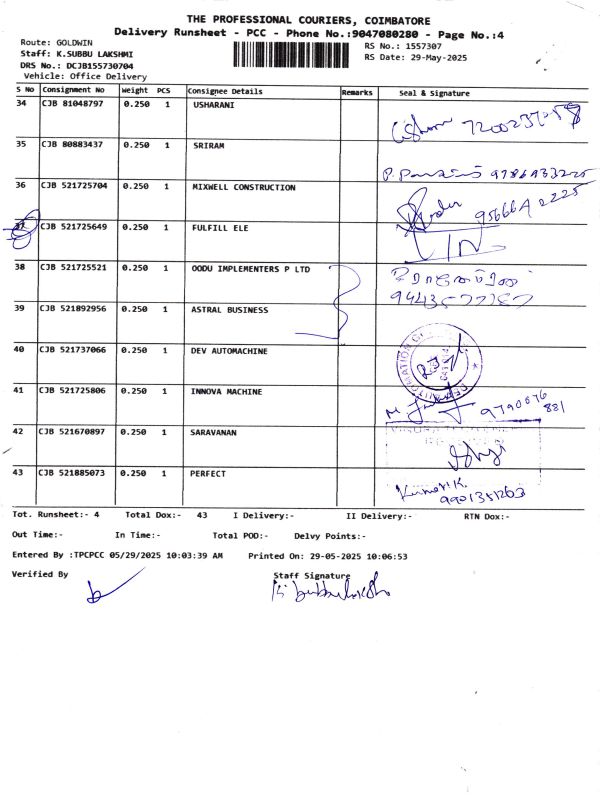 THE PROFESSIONAL COURIERS, COIMBATORE
Delivery Runsheet - PCC - Phone No.:9047080280 - Page No.:4
Route: GOLDWIN
RS No.: 1557307
Staff: K.SUBBU LAKSHMI
RS Date: 29-May-2025
DRS No.: DCJB155730704
Vehicle: Office Delivery
S No Consignment No Weight PCS Consignee Details Remarks Seal & Signature
34 CJB 81048797 0.250 1 USHARANI
35 CJB 80883437 0.250 1 SRIRAM
9786933225
36 CJB 521725704 0.250 1 MIXWELL CONSTRUCTION
37 CJB 521725649 0.250 1 FULFILL ELE
38 CJB 521725521 0.250 1 OODU IMPLEMENTERS P LTD
39 CJB 521892956 0.250 1 ASTRAL BUSINESS
40 CJB 521737066 0.250 1 DEV AUTOMACHINE
41 CJB 521725806 0.250 1 INNOVA MACHINE
9790876
881
42 CJB 521670897 0.250 1 SARAVANAN
43 CJB 521885073 0.250 1 PERFECT
Kumar.K.
9901351263
Tot. Runsheet:- 4 Total Dox:- 43 I Delivery:- II Delivery:- RTN Dox:-
Out Time:- In Time:- Total POD:- Delvy Points:-
Entered By :TPCPCC 05/29/2025 10:03:39 AM Printed On: 29-05-2025 10:06:53
Verified By Staff Signature
K. Subbulakshmi